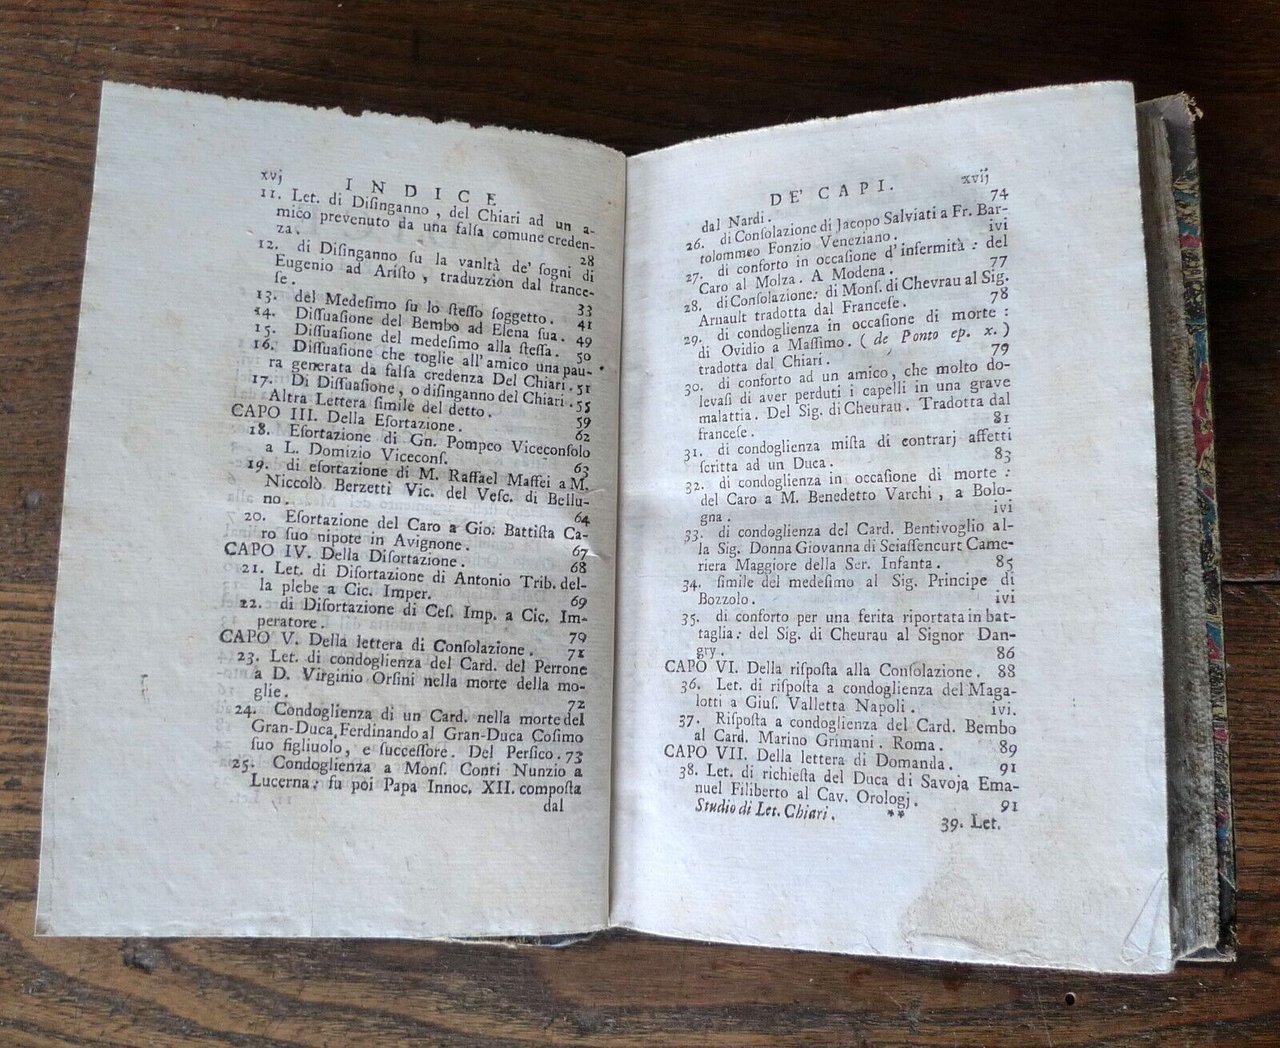 xvj INDICE
11. Let. di Diſinganno, del Chiari ad un a-
mico prevenuto da una falſa comune creden-
za. 28
12. di Diſinganno ſu la vanità de' ſogni di
Eugenio ad Ariſto, traduzzion dal france-
ſe. 33
13. del Medeſimo ſu lo ſteſſo ſoggetto. 41
14. Diſſuaſione del Bembo ad Elena ſua. 49
15. Diſſuaſione del medeſimo alla ſteſſa. 50
16. Diſſuaſione che toglie all'amico una pau-
ra generata da falſa credenza Del Chiari. 51
17. Di Diſſuaſione, o diſinganno del Chiari. 55
Altra Lettera ſimile del detto. 59
CAPO III. Della Eſortazione. 62
18. Eſortazione di Gn. Pompeo Viceconſolo
a L. Domizio Viceconſ. 63
19. di eſortazione di M. Raffael Maffei a M.
Niccolò Berzetti Vic. del Veſc. di Bellu-
no. 64
20. Eſortazione del Caro a Gio. Battiſta Ca-
ro ſuo nipote in Avignone. 67
CAPO IV. Della Diſortazione. 68
21. Let. di Diſortazione di Antonio Trib. del-
la plebe a Cic. Imper. 69
22. di Diſortazione di Ceſ. Imp. a Cic. Im-
peratore. 70
CAPO V. Della lettera di Conſolazione. 71
23. Let. di condoglienza del Card. del Perrone
a D. Virginio Orſini nella morte della mo-
glie. 72
24. Condoglienza di un Card. nella morte del
Gran-Duca Ferdinando al Gran-Duca Coſimo
ſuo figliuolo, e ſucceſſore. Del Perſico. 73
25. Condoglienza a Monſ. Conti Nunzio a
Lucerna: fu poi Papa Innoc. XII. compoſta
dal
DE' CAPI. xvij
dal Nardi. 74
26. di Conſolazione di Jacopo Salviati a Fr. Bar-
tolommeo Fonzio Veneziano. ivi
27. di conforto in occaſione d'infermità: del
Caro al Molza. A Modena. 77
28. di Conſolazione: di Monſ. di Chevrau al Sig.
Arnault tradotta dal Franceſe. 78
29. di condoglienza in occaſione di morte:
di Ovidio a Maſſimo. (de Ponto ep. x.)
tradotta dal Chiari. 79
30. di conforto ad un amico, che molto do-
levaſi di aver perduti i capelli in una grave
malattia. Del Sig. di Cheurau. Tradotta dal
franceſe. 81
31. di condoglienza miſta di contrarj affetti
ſcritta ad un Duca. 83
32. di condoglienza in occaſione di morte:
del Caro a M. Benedetto Varchi, a Bolo-
gna. ivi
33. di condoglienza del Card. Bentivoglio al-
la Sig. Donna Giovanna di Sciaſſencurt Came-
riera Maggiore della Ser. Infanta. 85
34. ſimile del medeſimo al Sig. Principe di
Bozzolo. ivi
35. di conforto per una ferita riportata in bat-
taglia: del Sig. di Cheurau al Signor Dan-
gry. 86
CAPO VI. Della riſpoſta alla Conſolazione. 88
36. Let. di riſpoſta a condoglienza del Maga-
lotti a Giuſ. Valletta Napoli. ivi.
37. Riſpoſta a condoglienza del Card. Bembo
al Card. Marino Grimani. Roma. 89
CAPO VII. Della lettera di Domanda. 91
38. Let. di richieſta del Duca di Savoja Ema-
nuel Filiberto al Cav. Orologj. 91
Studio di Let. Chiari. ** 39. Let.